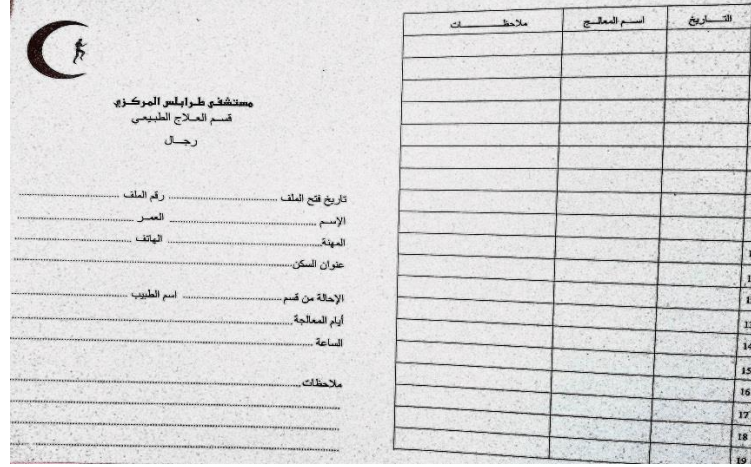 مستشفى طرابلس المركزي
قسم العلاج الطبيعي
رجال
تاريخ فتح الملف ........................ رقم الملف ........................
الإسم ........................ العمر ........................
المهنة ........................ الهاتف ........................
عنوان السكن ........................
الإحالة من قسم ........................ اسم الطبيب ........................
أيام المعالجة ........................
الساعة ........................
ملاحظات ........................
التاريخ اسم المعالج ملاحظات
14
15
16
17
18
19